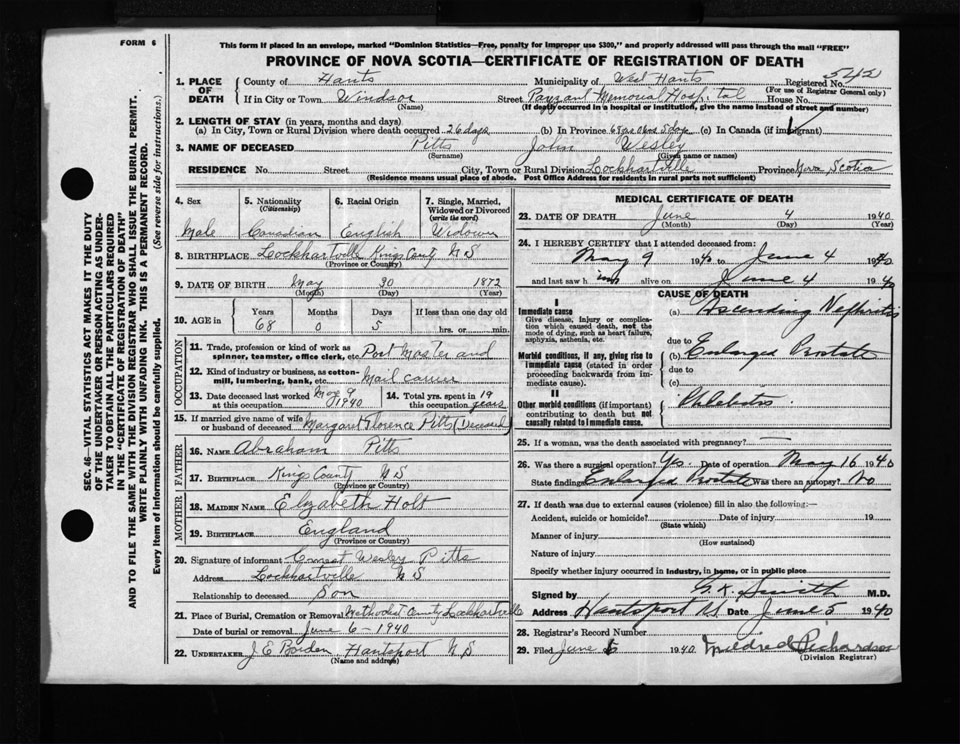 FORM 6
This form if placed in an envelope, marked "Dominion Statistics—Free, penalty for improper use $300," and properly addressed will pass through the mail "FREE"
PROVINCE OF NOVA SCOTIA—CERTIFICATE OF REGISTRATION OF DEATH
1. PLACE OF DEATH County of Hants Municipality of West Hants Registered No. 542
(For use of Registrar General only)
If in City or Town Windsor Street Payzant Memorial Hospital House No.
(Name) (If death occurred in a hospital or institution, give the name instead of street and number)
2. LENGTH OF STAY (in years, months and days)
(a) In City, Town or Rural Division where death occurred 26 days (b) In Province 68 yrs 0 mos 5 days (c) In Canada (if immigrant)
3. NAME OF DECEASED Pitts John Wesley
(Surname) (Given name or names)
RESIDENCE No. Street City, Town or Rural Division Lockhartville Province Nova Scotia
(Residence means usual place of abode. Post Office Address for residents in rural parts not sufficient)
4. Sex 5. Nationality (Citizenship) 6. Racial Origin 7. Single, Married, Widowed or Divorced (write the word)
Male Canadian English Widower
8. BIRTHPLACE Lockhartville Kings County N S
(Province or County)
9. DATE OF BIRTH May 30 1872
(Month) (Day) (Year)
10. AGE in Years Months Days If less than one day old
68 0 5 hrs. or min.
OCCUPATION
11. Trade, profession or kind of work as spinner, teamster, office clerk, etc. Post Master and
12. Kind of industry or business, as cotton-mill, lumbering, bank, etc. Mail carrier
13. Date deceased last worked at this occupation May 9 1940 14. Total yrs. spent in this occupation 19 years
15. If married give name of wife or husband of deceased Margaret Florence Pitts (Deceased)
FATHER
16. NAME Abraham Pitts
17. BIRTHPLACE Kings County N S
(Province or County)
MOTHER
18. MAIDEN NAME Elizabeth Holt
19. BIRTHPLACE England
(Province or County)
20. Signature of informant Ernest Wesley Pitts
Address Lockhartville N S
Relationship to deceased Son
21. Place of Burial, Cremation or Removal Methodist Lockhartville
Date of burial or removal June 6 - 1940
22. UNDERTAKER J E Borden Hantsport N S
(Name and address)
MEDICAL CERTIFICATE OF DEATH
23. DATE OF DEATH June 4 1940
(Month) (Day) (Year)
24. I HEREBY CERTIFY that I attended deceased from:
May 9 1940 to June 4 1940
and last saw him alive on June 4 1940
CAUSE OF DEATH
I
Immediate cause
Give disease, injury or complication which caused death, not the mode of dying, such as heart failure, asphyxia, asthenia, etc.
(a) Ascending Nephritis
due to
Morbid conditions, if any, giving rise to immediate cause (stated in order proceeding backwards from immediate cause).
(b) Enlarged Prostate
due to
(c)
II
Other morbid conditions (if important) contributing to death but not causally related to immediate cause.
Phlebitis
25. If a woman, was the death associated with pregnancy? —
26. Was there a surgical operation? Yes Date of operation May 16 1940
State findings Enlarged Prostate Was there an autopsy? No
27. If death was due to external causes (violence) fill in also the following:—
Accident, suicide or homicide? Date of injury 19
(State which)
Manner of injury
(How sustained)
Nature of injury
Specify whether injury occurred in industry, in home, or in public place
Signed by G. K. Smith M.D.
Address Hantsport N.S. Date June 5 1940
28. Registrar's Record Number
29. Filed June 1940 Mildred Richardson
(Division Registrar)
SEC. 46—VITAL STATISTICS ACT MAKES IT THE DUTY OF THE UNDERTAKER OR PERSON ACTING AS UNDERTAKER TO OBTAIN ALL THE PARTICULARS REQUIRED IN THE "CERTIFICATE OF REGISTRATION OF DEATH" AND TO FILE THE SAME WITH THE DIVISION REGISTRAR WHO SHALL ISSUE THE BURIAL PERMIT.
WRITE PLAINLY WITH UNFADING INK. THIS IS A PERMANENT RECORD.
Every item of information should be carefully supplied. (See reverse side for instructions.)